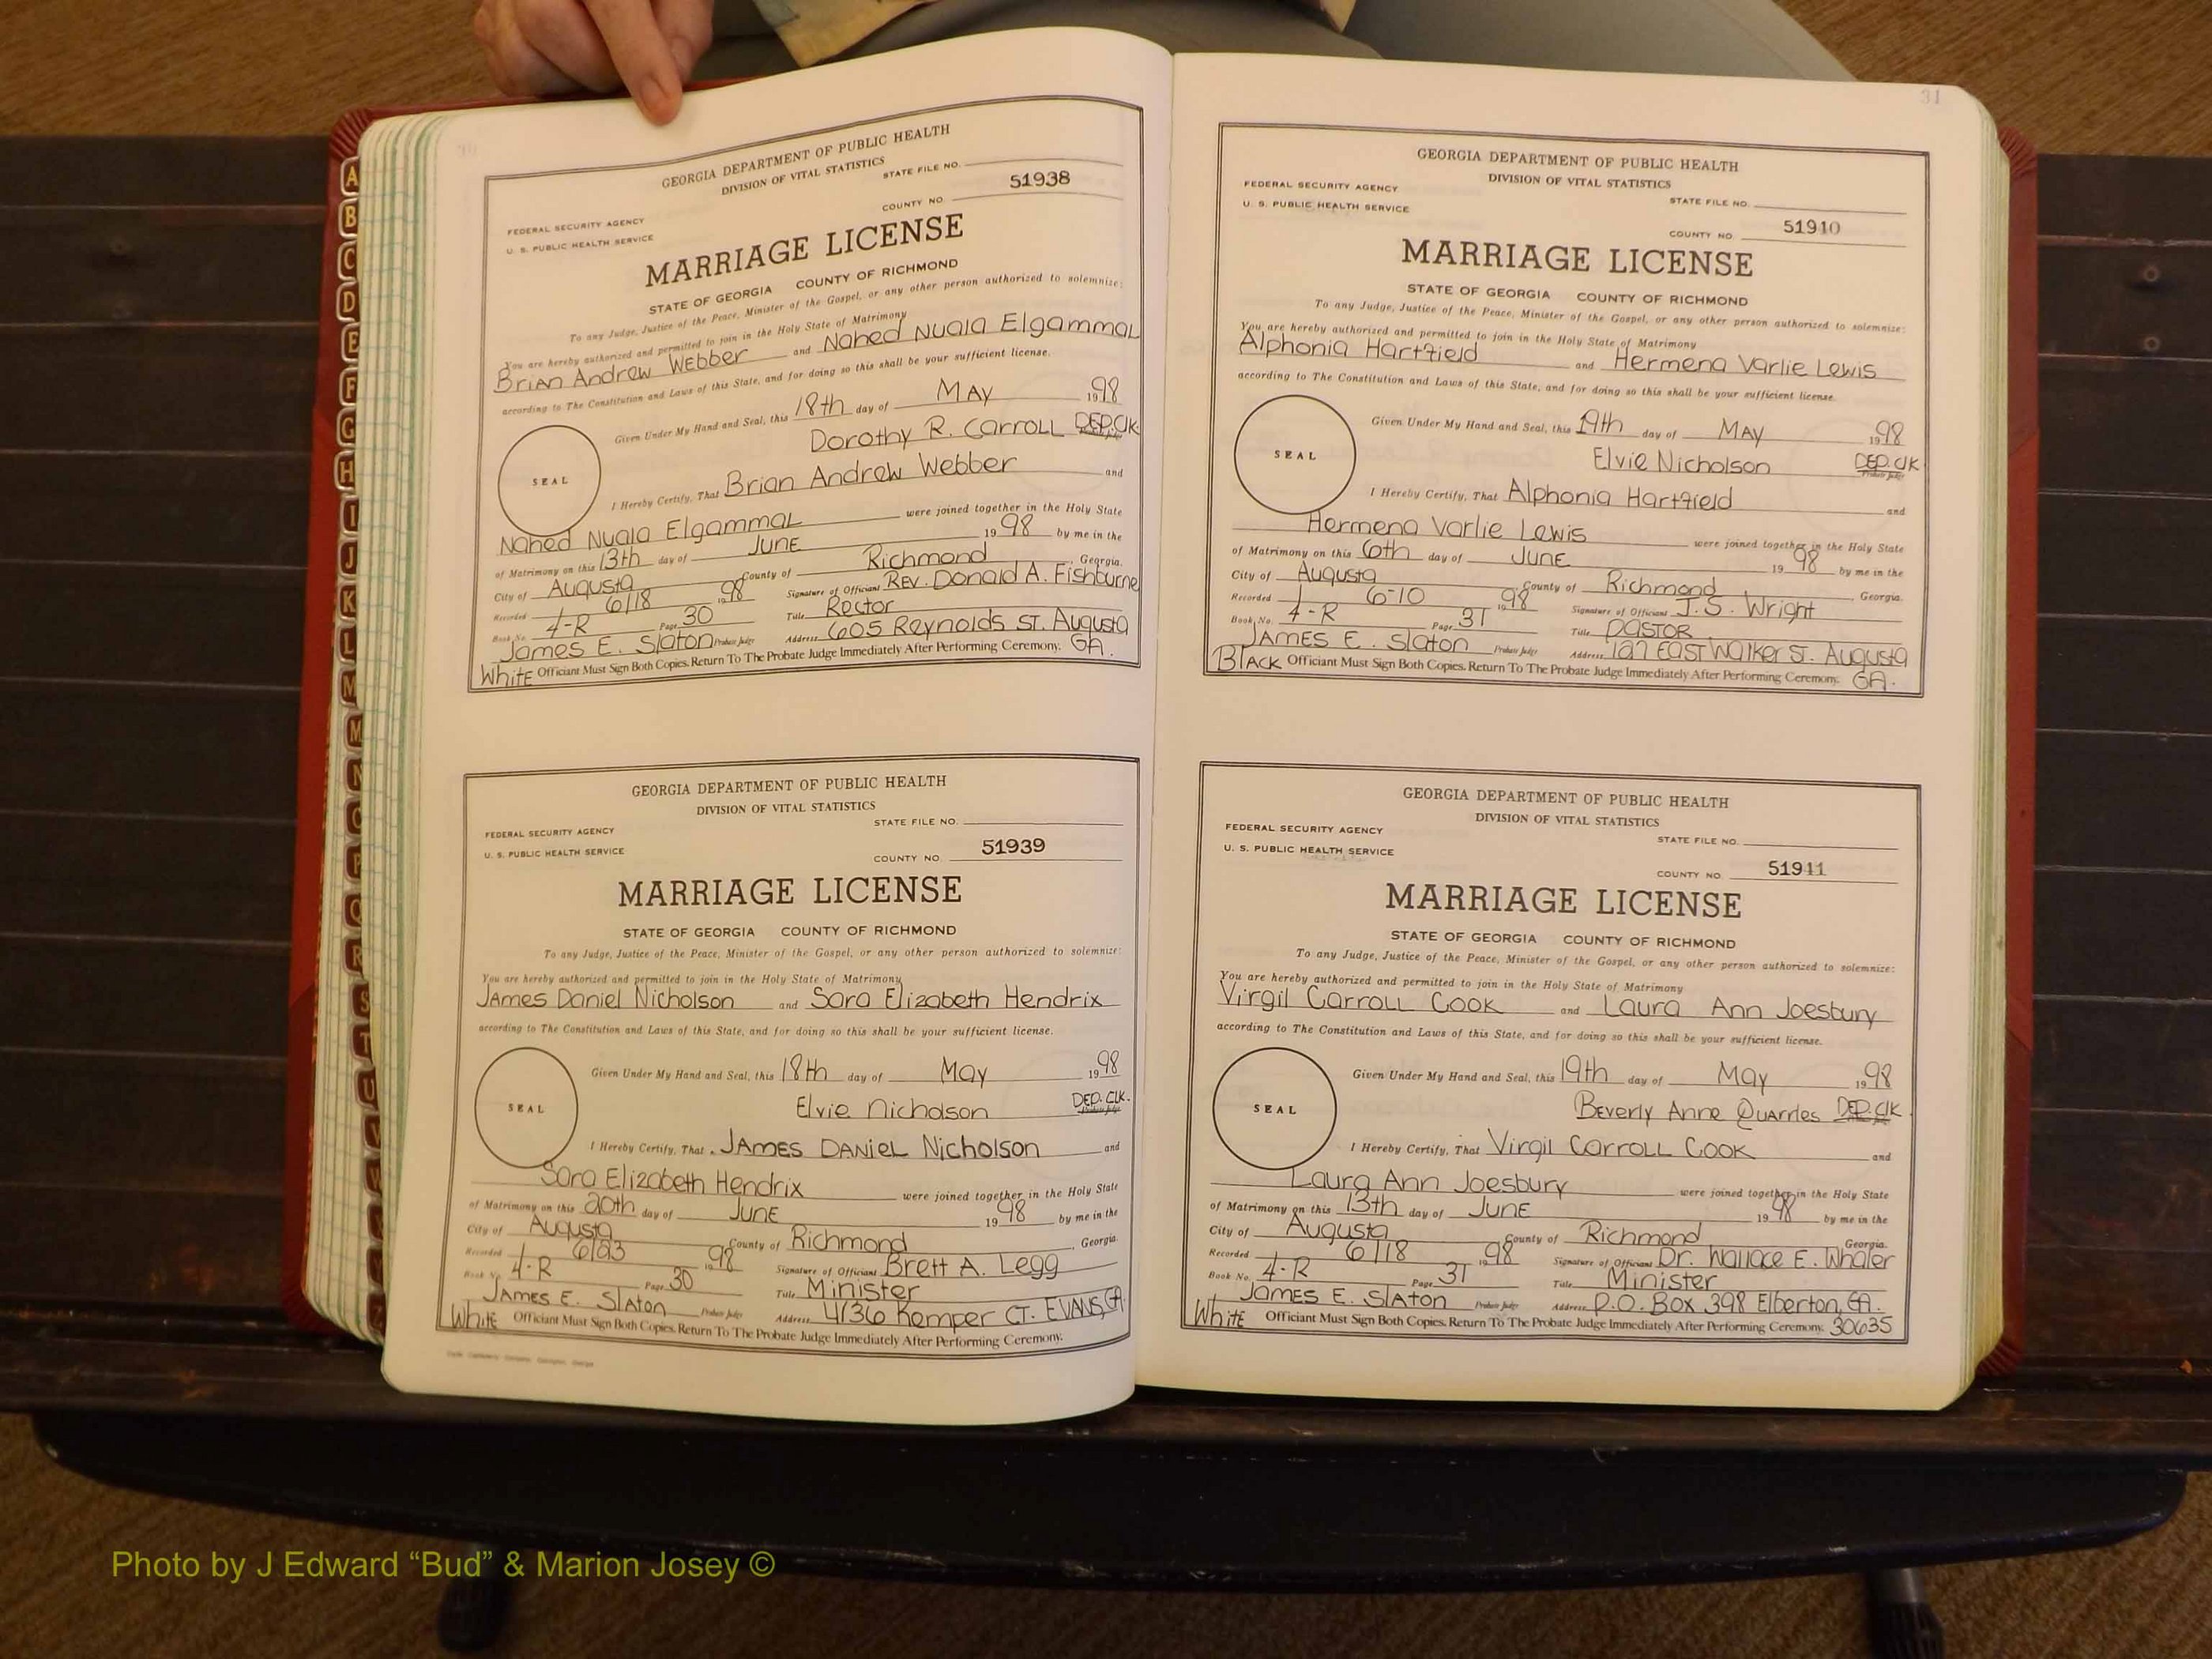 30
GEORGIA DEPARTMENT OF PUBLIC HEALTH
DIVISION OF VITAL STATISTICS
STATE FILE NO.
FEDERAL SECURITY AGENCY
U. S. PUBLIC HEALTH SERVICE
COUNTY NO. 51938
MARRIAGE LICENSE
STATE OF GEORGIA COUNTY OF RICHMOND
To any Judge, Justice of the Peace, Minister of the Gospel, or any other person authorized to solemnize:
You are hereby authorized and permitted to join in the Holy State of Matrimony
Brian Andrew Webber and Nahed Nuala Elgammal
according to The Constitution and Laws of this State, and for doing so this shall be your sufficient license.
Given Under My Hand and Seal, this 18th day of May 1998
SEAL
Dorothy R. Carroll DEP. Clk.
I Hereby Certify, That Brian Andrew Webber and
Nahed Nuala Elgammal were joined together in the Holy State
of Matrimony on this 13th day of June 1998 by me in the
City of Augusta County of Richmond Georgia.
Recorded 6/18 1998 Signature of Officiant Rev. Donald A. Fishburne
Book No. 4-R Page 30 Title Rector
James E. Slaton Probate Judge Address 605 Reynolds St. Augusta
White Officiant Must Sign Both Copies. Return To The Probate Judge Immediately After Performing Ceremony. GA.
GEORGIA DEPARTMENT OF PUBLIC HEALTH
DIVISION OF VITAL STATISTICS
STATE FILE NO.
FEDERAL SECURITY AGENCY
U. S. PUBLIC HEALTH SERVICE
COUNTY NO. 51939
MARRIAGE LICENSE
STATE OF GEORGIA COUNTY OF RICHMOND
To any Judge, Justice of the Peace, Minister of the Gospel, or any other person authorized to solemnize:
You are hereby authorized and permitted to join in the Holy State of Matrimony
James Daniel Nicholson and Sara Elizabeth Hendrix
according to The Constitution and Laws of this State, and for doing so this shall be your sufficient license.
Given Under My Hand and Seal, this 18th day of May 1998
SEAL
Elvie Nicholson DEP. CLK.
I Hereby Certify, That James Daniel Nicholson and
Sara Elizabeth Hendrix were joined together in the Holy State
of Matrimony on this 20th day of June 1998 by me in the
City of Augusta County of Richmond Georgia.
Recorded 6/23 1998 Signature of Officiant Brett A. Legg
Book No. 4-R Page 30 Title Minister
James E. Slaton Probate Judge Address 4136 Kemper CT. Evans, GA.
White Officiant Must Sign Both Copies. Return To The Probate Judge Immediately After Performing Ceremony.
31
GEORGIA DEPARTMENT OF PUBLIC HEALTH
DIVISION OF VITAL STATISTICS
FEDERAL SECURITY AGENCY
U. S. PUBLIC HEALTH SERVICE
STATE FILE NO.
COUNTY NO. 51940
MARRIAGE LICENSE
STATE OF GEORGIA COUNTY OF RICHMOND
To any Judge, Justice of the Peace, Minister of the Gospel, or any other person authorized to solemnize:
You are hereby authorized and permitted to join in the Holy State of Matrimony
Alphonia Hartfield and Hermena Varlie Lewis
according to The Constitution and Laws of this State, and for doing so this shall be your sufficient license.
Given Under My Hand and Seal, this 19th day of May 1998
SEAL
Elvie Nicholson DEP. Clk
Probate Judge
I Hereby Certify, That Alphonia Hartfield and
Hermena Varlie Lewis were joined together in the Holy State
of Matrimony on this 6th day of June 1998 by me in the
City of Augusta County of Richmond Georgia.
Recorded 6-10 1998 Signature of Officiant J. S. Wright
Book No. 4-R Page 31 Title Pastor
James E. Slaton Probate Judge Address 127 East Walker St. Augusta
Black Officiant Must Sign Both Copies. Return To The Probate Judge Immediately After Performing Ceremony. GA.
GEORGIA DEPARTMENT OF PUBLIC HEALTH
DIVISION OF VITAL STATISTICS
FEDERAL SECURITY AGENCY
U. S. PUBLIC HEALTH SERVICE
STATE FILE NO.
COUNTY NO. 51941
MARRIAGE LICENSE
STATE OF GEORGIA COUNTY OF RICHMOND
To any Judge, Justice of the Peace, Minister of the Gospel, or any other person authorized to solemnize:
You are hereby authorized and permitted to join in the Holy State of Matrimony
Virgil Carroll Cook and Laura Ann Joesbury
according to The Constitution and Laws of this State, and for doing so this shall be your sufficient license.
Given Under My Hand and Seal, this 19th day of May 1998
SEAL
Beverly Anne Quarles DEP. Clk
I Hereby Certify, That Virgil Carroll Cook and
Laura Ann Joesbury were joined together in the Holy State
of Matrimony on this 13th day of June 1998 by me in the
City of Augusta County of Richmond Georgia.
Recorded 6/18 1998 Signature of Officiant Dr. Wallace E. Whaler
Book No. 4-R Page 31 Title Minister
James E. Slaton Probate Judge Address P.O. Box 398 Elberton, GA.
White Officiant Must Sign Both Copies. Return To The Probate Judge Immediately After Performing Ceremony. 30635
A
B
C
D
E
F
G
H
I
J
K
L
M
M
N
O
P
Q
R
S
T
U
Photo by J Edward “Bud” & Marion Josey ©